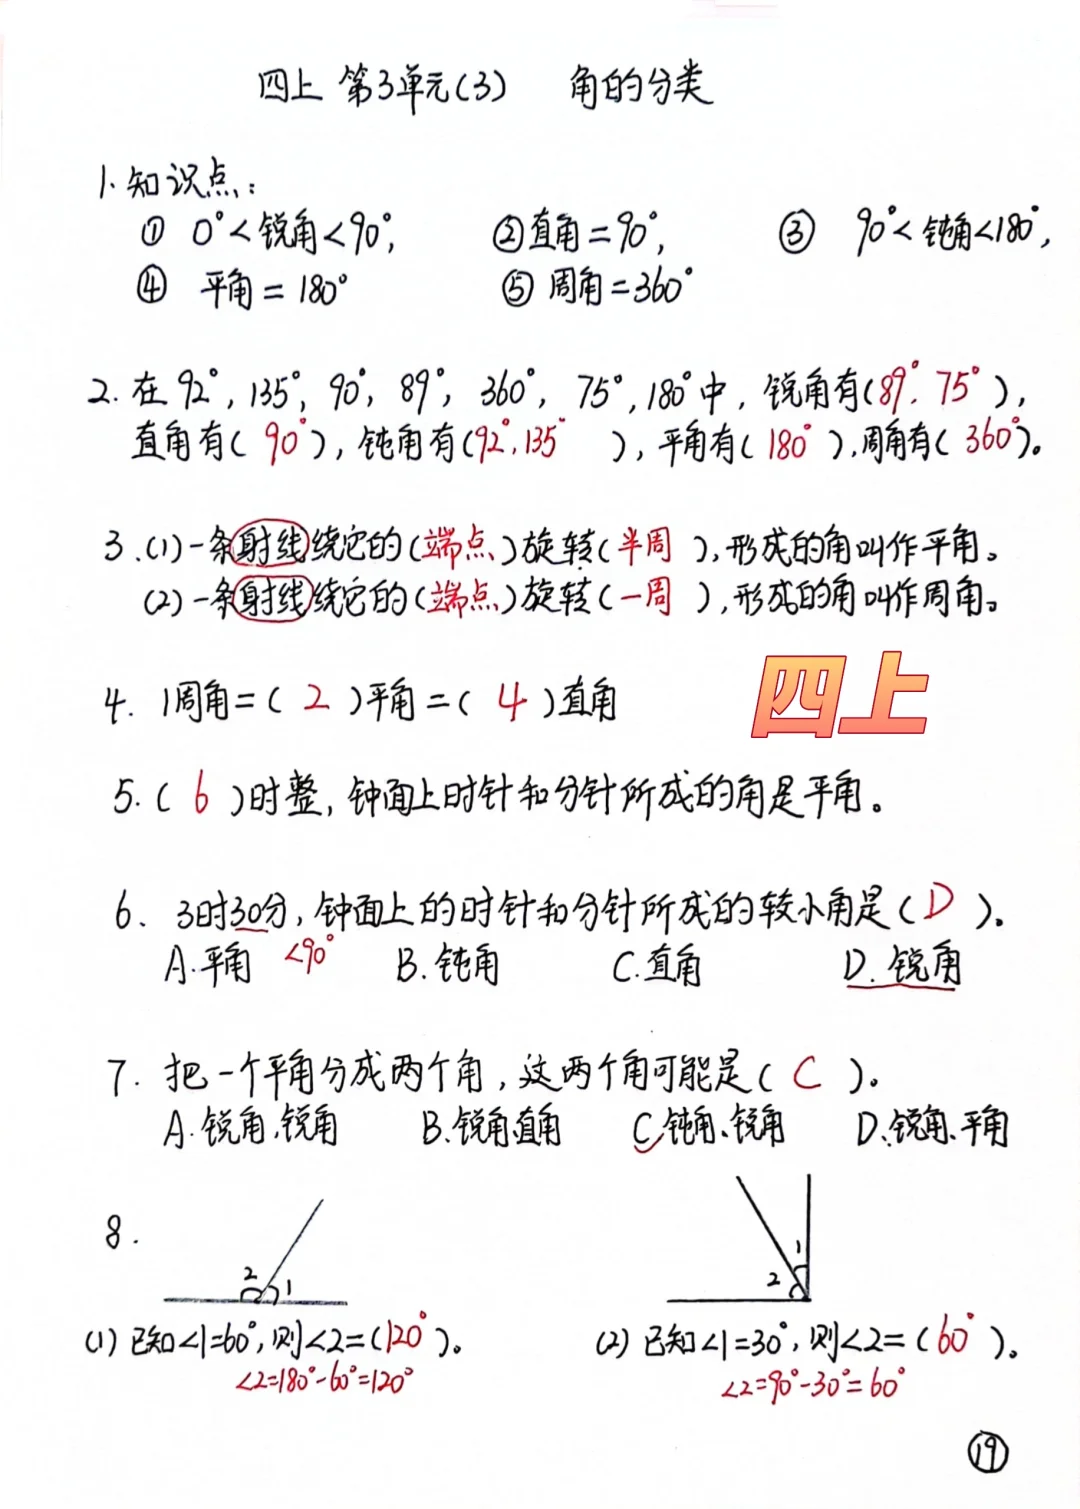 四上 第3单元(3) 角的分类
1.知识点:
① 0°<锐角<90°, ②直角=90°, ③ 90°<钝角<180°,
④ 平角=180° ⑤ 周角=360°
2.在92°,135°,90°,89°,360°,75°,180°中,锐角有(89°.75°),
直角有(90°),钝角有(92°.135°),平角有(180°),周角有(360°)。
3.(1)一条射线绕它的(端点)旋转(半周),形成的角叫作平角。
(2)一条射线绕它的(端点)旋转(一周),形成的角叫作周角。
4. 1周角=(2)平角=(4)直角
四上
5.(6)时整,钟面上时针和分针所成的角是平角。
6. 3时30分,钟面上的时针和分针所成的较小角是(D)。
<90°
A.平角 B.钝角 C.直角 D.锐角
7. 把一个平角分成两个角,这两个角可能是(C)。
A.锐角、锐角 B.锐角、直角 C.钝角、锐角 D.锐角、平角
8.
2 1
1
2
(1)已知∠1=60°,则∠2=(120°)。 (2)已知∠1=30°,则∠2=(60°)。
∠2=180°-60°=120° ∠2=90°-30°=60°
19